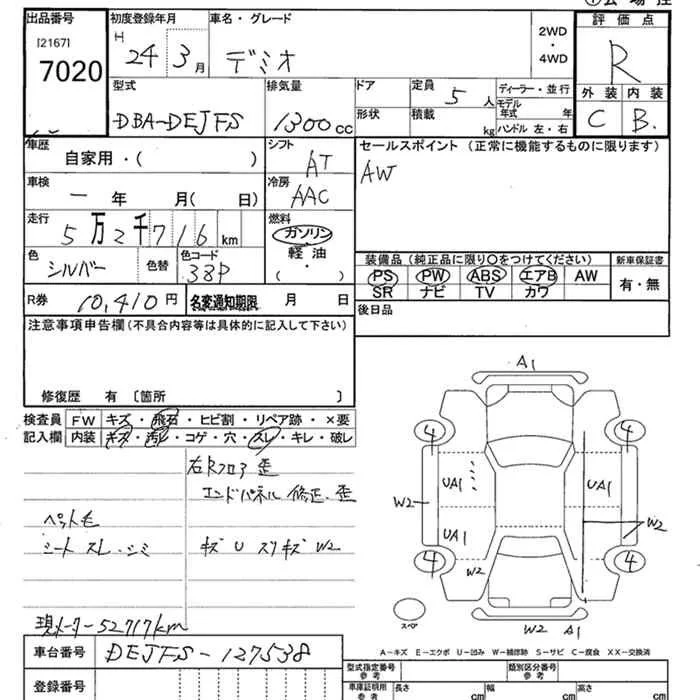 出品番号
[2167]
7020
初度登録年月
H 24 3月
車名・グレード
デミオ
2WD
・
4WD
評価点
R
外装 内装
C B.
型式
DBA-DEJFS
排気量
1300cc
ドア
形状
定員 5人
積載 kg
ディーラー・並行
モデル年式 年
ハンドル 左・右
車歴
自家用・( )
シフト
AT
セールスポイント (正常に機能するものに限ります)
AW
車検
一 年 月( 日)
冷房
AAC
走行
5万2千716km
燃料
ガソリン
軽油
・
( )
色
シルバー
色替
色コード
38P
装備品 (純正品に限り〇をつけてください)
PS PW ABS エアB AW
SR ナビ TV カワ
新車保証書
有・無
R券 10,410円
名変通知期限 月 日
後日品
注意事項申告欄(不具合内容等は具体的に記入して下さい)
修復歴 有 〔箇所 〕
検査員
記入欄
FW キズ・飛石・ヒビ割・リペア跡・×要
内装 キズ・汚レ・コゲ・穴・スレ・キレ・破レ
右Rフロア 歪
エンドパネル 修正、歪
ペット毛
シート スレ・シミ
キズ U スリキズ W2
現メーター52717km
A1
4
4
UA1
UA1
W2
UA1
W2
4
W2
4
スペア
W2 A1
A-キズ E-エクボ U-凹み W-補修跡 S-サビ C-腐食 XX-交換済
車台番号 DEJFS-127538
登録番号
型式指定番号
参考
類別区分番号
参考
車庫証明用
参考
長さ cm
幅 cm
高さ cm